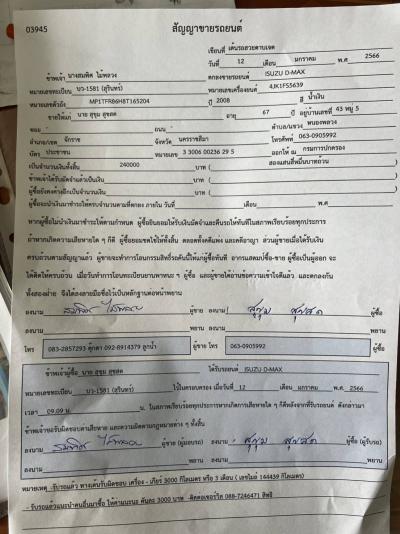 03945
สัญญาขายรถยนต์
เขียนที่ เต็นรถสวยตามใจ
วันที่ 12 เดือน มกราคม พ.ศ 2566
ข้าพเจ้า นางสมพิศ ไม้พลวง ตกลงขายรถยนต์ ISUZU D-MAX
หมายเลขทะเบียน บว-1581 (สุรินทร์) หมายเลขเครื่องยนต์ 4JK1FS5639
หมายเลขตัวถัง MP1TFR86H8T165204 ปี 2008 สี น้ำเงิน
ขายให้แก่ นาย สุขุม สุขสด อายุ 67 ปี อยู่บ้านเลขที่ 43 หมู่ 5
ซอย - ถนน - ตำบล/แขวง หนองพลวง
อำเภอ/เขต จักราช จังหวัด นครราชสีมา โทรศัพท์ 063-0905992
บัตร ประชาชน หมายเลข 3 3006 00236 29 5 ออกให้ ณ กรมการปกครอง
เป็นจำนวนเงินทั้งสิ้น 240000 บาท ( สองแสนสี่หมื่นบาทถ้วน )
ข้าพเจ้าได้รับมัดจำแล้วเป็นเงิน บาท ( )
ผู้ซื้อยังคงค้างอีกเป็นจำนวนเงิน บาท ( )
ผู้ซื้อจะนำเงินมาชำระให้ครบจำนวนตามที่ตกลง ภายใน วันที่ เดือน พ.ศ
หากผู้ซื้อไม่นำเงินมาชำระให้ตามกำหนด ผู้ซื้อยินยอมให้ริบเงินมัดจำและคืนรถให้ทันทีในสภาพเรียบร้อยทุกประการ
ถ้าหากเกิดความเสียหายใด ๆ ก็ดี ผู้ซื้อยอมชดใช้ให้ทั้งสิ้น ตลอดทั้งคดีแพ่ง และคดีอาญา ส่วนผู้ขายเมื่อได้รับเงิน
ครบถ้วนตามสัญญาแล้ว ผู้ขายจะทำการโอนกรรมสิทธิ์รถคันนี้ให้แก่ผู้ซื้อทันที อากรแสตมป์ซื้อ-ขาย ผู้ซื้อเป็นผู้ออก จะ
ได้คิดให้ครบถ้วน เมื่อวันทำการโอนทะเบียนยานพาหนะ ๆ ผู้ซื้อ และผู้ขายได้อ่านข้อความเข้าใจดีแล้ว และตกลงกัน
ทั้งสองฝ่าย จึงได้ลงลายมือชื่อไว้เป็นหลักฐานต่อหน้าพยาน
ลงนาม สมพิศ ไม้พลวง ผู้ขาย ลงนาม สุขุม สุขสด ผู้ซื้อ
ลงนาม พยาน ลงนาม พยาน
โทร 083-2857293 ตุ๊กตา 092-8914379 ลูกน้ำ ผู้ขาย โทร 063-0905992 ผู้ซื้อ
ข้าพเจ้าผู้ซื้อ นาย สุขุม สุขสด ได้รับรถยนต์ ISUZU D-MAX
หมายเลขทะเบียน บว-1581 (สุรินทร์) ไว้ในครอบครอง เมื่อวันที่ 12 เดือน มกราคม พ.ศ 2566
เวลา 09.09 น. น. ในสภาพเรียบร้อยทุกประการหากเกิดการเสียหายใด ๆ ก็ดีหลังจากที่รับรถยนต์ ดังกล่าวมา
ข้าพเจ้าขอรับผิดชอบค่าเสียหาย และความผิดตามกฎหมายต่าง ๆ ทั้งสิ้น
ลงนาม สมพิศ ไม้พลวง ผู้ขาย (ผู้มอบรถ) ลงนาม สุขุม สุขสด ผู้ซื้อ (ผู้รับรถ)
ลงนาม พยาน ลงนาม พยาน
หมายเหตุ -รับรถแล้ว ทางเต็นรับผิดชอบ เครื่อง - เกียร์ 3000 กิโลเมตร หรือ 3 เดือน ( เลขไมล์ 144439 กิโลเมตร)
- รับรถแล้วแนะนำคนอื่นมาซื้อ ให้ค่าแนะนะ คันละ 3000 บาท -ติดต่อเซอร์วิส 088-7246471 สิทธิ